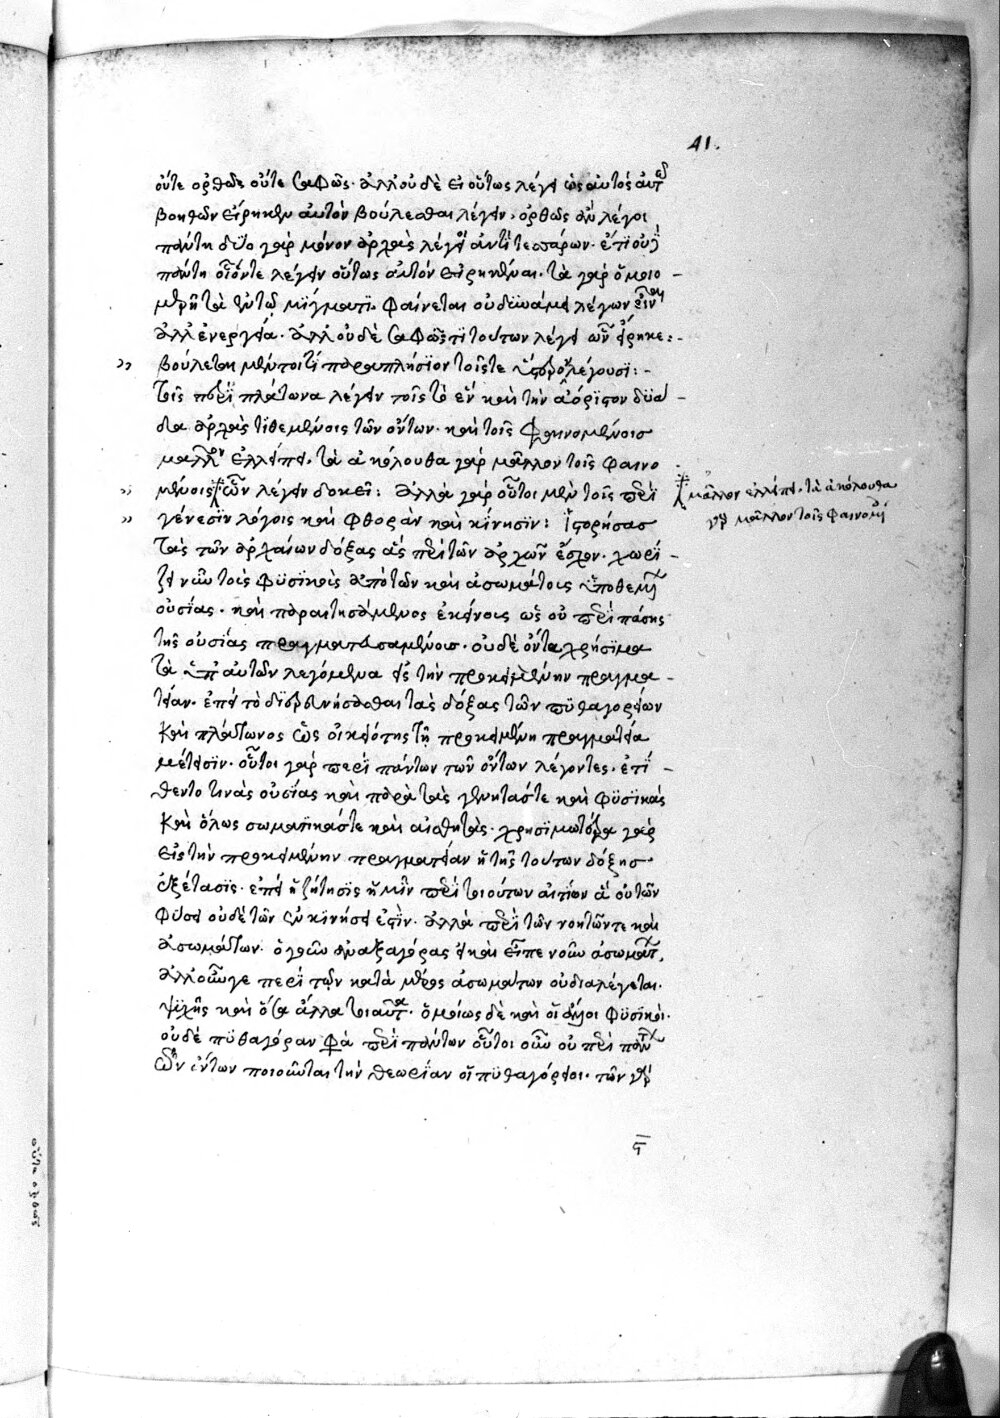 41.
οὔτε ὀρθῶς οὔτε σαφῶς. ἀλλ' οὐδὲ εἰ οὕτως λέγει ὡς αὐτὸς αὐτῷ
βοηθῶν εἴρηκεν αὐτὸν βούλεσθαι λέγειν, ὀρθῶς ἂν λέγοι
πάντη δύο γὰρ μόνον ἀρχὰς λέγει ἀντὶ τεσσάρων. ἔτι οὐχὶ
πάντη οἷόντε λέγειν οὕτως αὐτὸν εἰρηκέναι. τὰ γὰρ ὅμοιο-
μερῆ τὰ ἐν τῷ μίγματι. φαίνεται οὐ δυνάμει λέγων εἶναι
ἀλλ' ἐνεργεία. ἀλλ' οὐδὲ σαφῶς τί τούτων λέγει ὧν εἴρηκε:-
βούλεται μέντοι τὶ παραπλήσιον τοῖς τε ὕστερον λέγουσι:-
τοῖς περὶ πλάτωνα λέγειν τοῖς τὸ ἓν καὶ τὴν ἀόριστον δυά-
δα ἀρχὰς τιθεμένοις τῶν ὄντων. καὶ τοῖς φαινομένοις
μᾶλλον ἐλλείπει. τὰ ἀκόλουθα γὰρ μᾶλλον τοῖς φαινο-
μένοις ὧν λέγειν δοκεῖ: ἀλλὰ γὰρ οὗτοι μὲν τοῖς περὶ
μᾶλλον ἐλλείπει. τὰ ἀκόλουθα
γὰρ μᾶλλον τοῖς φαινομέ
γένεσιν λόγοις καὶ φθορὰν καὶ κίνησιν: ἱστορήσας
τὰς τῶν ἀρχαίων δόξας ἃς περὶ τῶν ἀρχῶν ἔσχον. χωρί-
ζει νῦν τοὺς φυσικοὺς ἀπὸ τῶν καὶ ἀσωμάτους ὑποθεμένων
οὐσίας. καὶ παραιτησάμενος ἐκείνοις ὡς οὐ περὶ πάσης
τῆς οὐσίας πραγματευσαμένοις. οὐδὲ ὄντα χρήσιμα
τὰ ὑπ' αὐτῶν λεγόμενα εἰς τὴν προκειμένην πραγμα
τείαν. ἐπὶ τὸ διερευνήσασθαι τὰς δόξας τῶν πυθαγορείων
καὶ πλάτωνος ὡς οἰκειότης τῇ προκειμένη πραγματεία
μέτεισιν. οὗτοι γὰρ περὶ πάντων τῶν ὄντων λέγοντες. ἐτί-
θεντο τινὰς οὐσίας καὶ παρὰ τὰς γεννητάς τε καὶ φυσικὰς
καὶ ὅλως σωματικάς τε καὶ αἰσθητάς. χρησιμωτέρα γὰρ
εἰς τὴν προκειμένην πραγματείαν ἡ τῆς τούτων δόξης
ἐξέτασις. ἐπεὶ ἡ ζήτησις ἡμῖν περὶ τοιούτων αἰτίων ἃ οὐ τῶν
φύσει οὐδὲ τῶν ἐν κινήσει ἐστὶν. ἀλλὰ περὶ τῶν νοητῶν τε καὶ
ἀσωμάτων. ὁ γοῦν ἀναξαγόρας εἰ καὶ εἶπε νοῦν ἀσώματον,
ἀλλ' οὖν γε περὶ τῶν κατὰ μέρος ἀσωμάτων οὐ διαλέγεται.
ψυχῆς καὶ ὅσα ἄλλα τοιαῦτα. ὁμοίως δὲ καὶ οἱ ἄλλοι φυσικοί.
οὐδὲ πυθαγόραν φα περὶ πάντων οὗτοι οὖν οὐ περὶ πάντων
τῶν ὄντων ποιοῦνται τὴν θεωρίαν οἱ πυθαγόρειοι. τῶν γὰρ